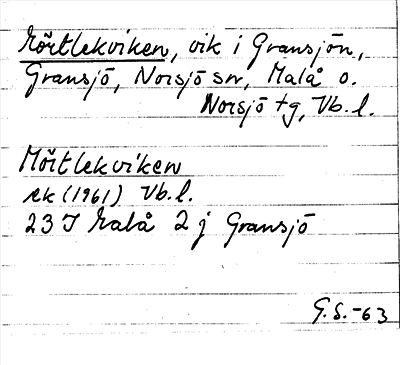 Mörtlekviken, vik i Gransjön,
Gransjö, Norsjö sn, Malå o.
Norsjö tg, Vb. l.
Mörtlekviken
ek (1961) Vb. l.
23 J Malå 2 j Gransjö
G. S. -63